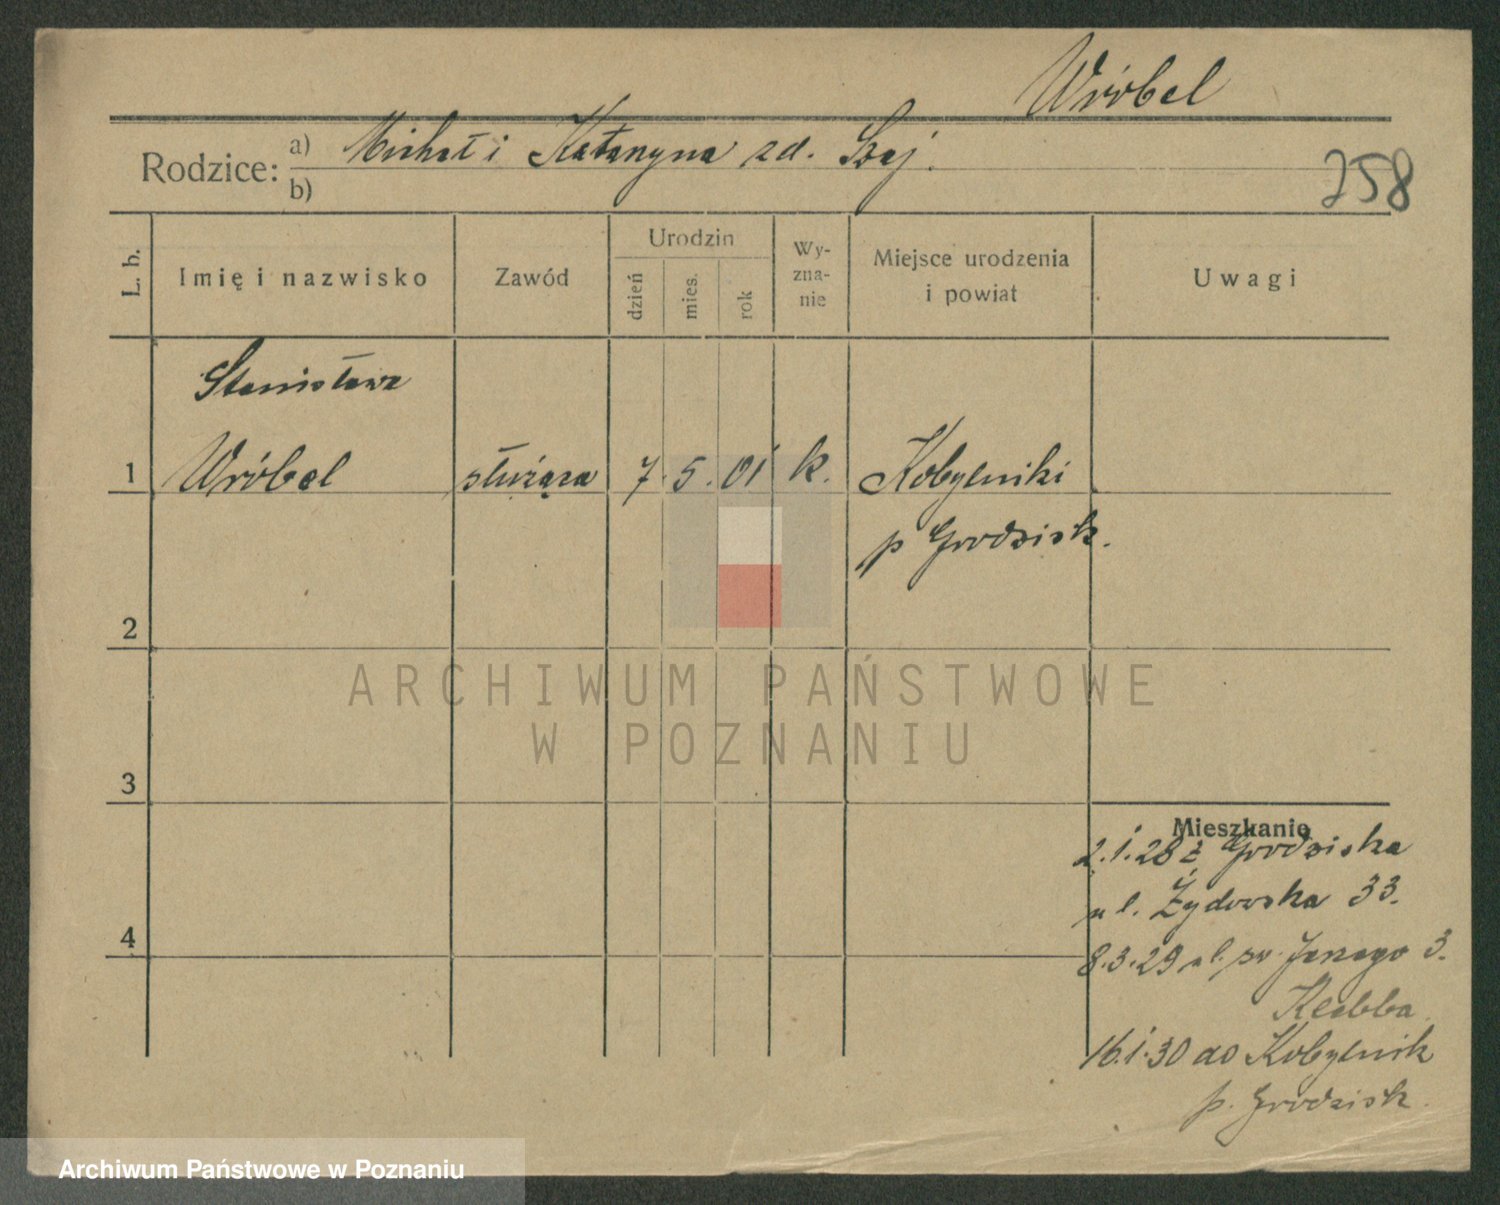 Wróbel
Rodzice: a) Michał i Katarzyna zd. Szaj.
b)
258
L. b. Imię i nazwisko Zawód Urodzin dzień mies. rok Wy-zna-nie Miejsce urodzenia i powiat Uwagi
Stanisława
1 Wróbel służąca 7. 5. 01 k. Kobylniki
p Grodzisk.
2
ARCHIWUM PAŃSTWOWE
W POZNANIU
3
Mieszkanie
2.1.28 z Grodziska
ul. Żydowska 33.
4
8.3.29 ul. św. Jerzego 3.
16.1.30 do Kobylnik
p. Grodzisk.
Archiwum Państwowe w Poznaniu